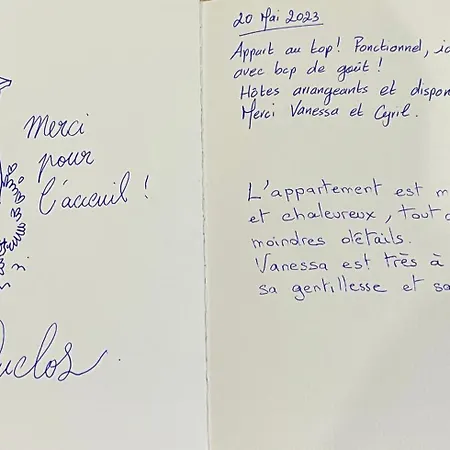 Merci
pour
l'accueil !
20 Mai 2023
Appart au top! Fonctionnel,
avec bcp de goût !
Hôtes arrangeants et
Merci Vanessa et Cyril.
L'appartement est
et chaleureux, tout
moindres détails.
Vanessa est très à
sa gentillesse et